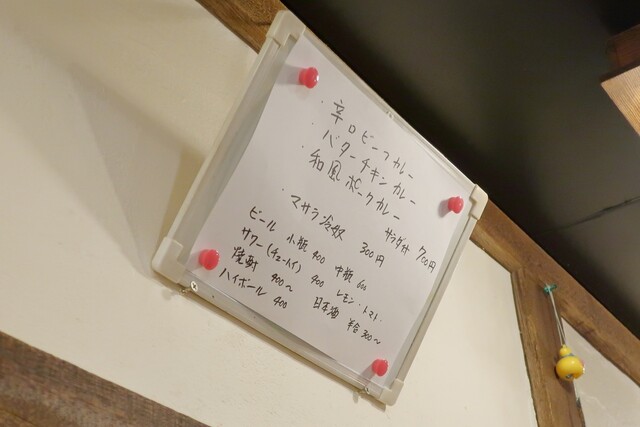 ・辛口ビーフカレー
・バターチキンカレー
・和風ポークカレー
サラダ付 700円
・マサラ冷奴 300円
ビール 小瓶 400 中瓶 600
サワー(チューハイ) 400 レモン・トマト・
焼酎 400〜 日本酒 半合 300〜
ハイボール 400